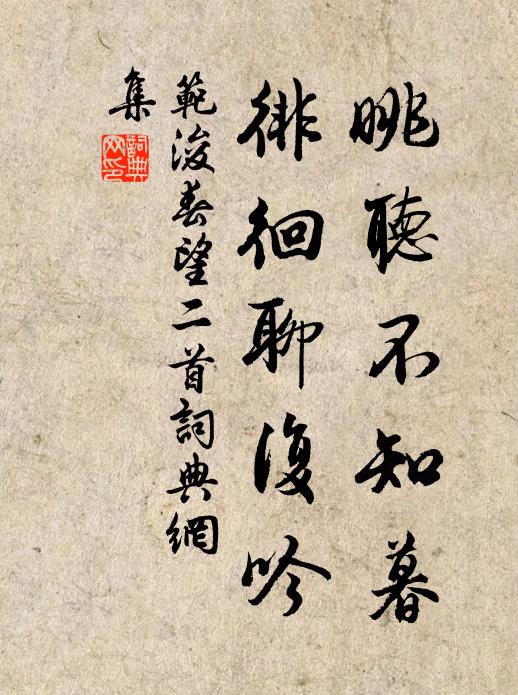 眺聽不知暮
徘徊聊復吟
範浚春望二首詞典網
集
詞典
网印